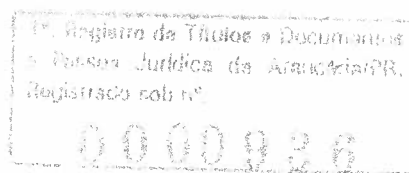 1º. Registro de Títulos e Documentos
e Pessoa Jurídica de Araucária/PR.
Registrado sob nº
0000926